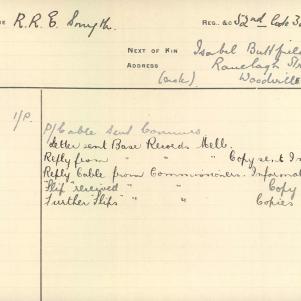 R.R.E. Smyth. REG. &C 52nd
NEXT OF KIN Isabel Buttfield
ADDRESS Ranelagh Str
(aunt) Woodville
1/P. P/Cable sent Commrs
Letter sent Base Records Melb.
Reply from " " " Copy sent I
Reply Cable from Commissioners. Informat
"Slip" received " " Copy
Further "Slips" " " Copies